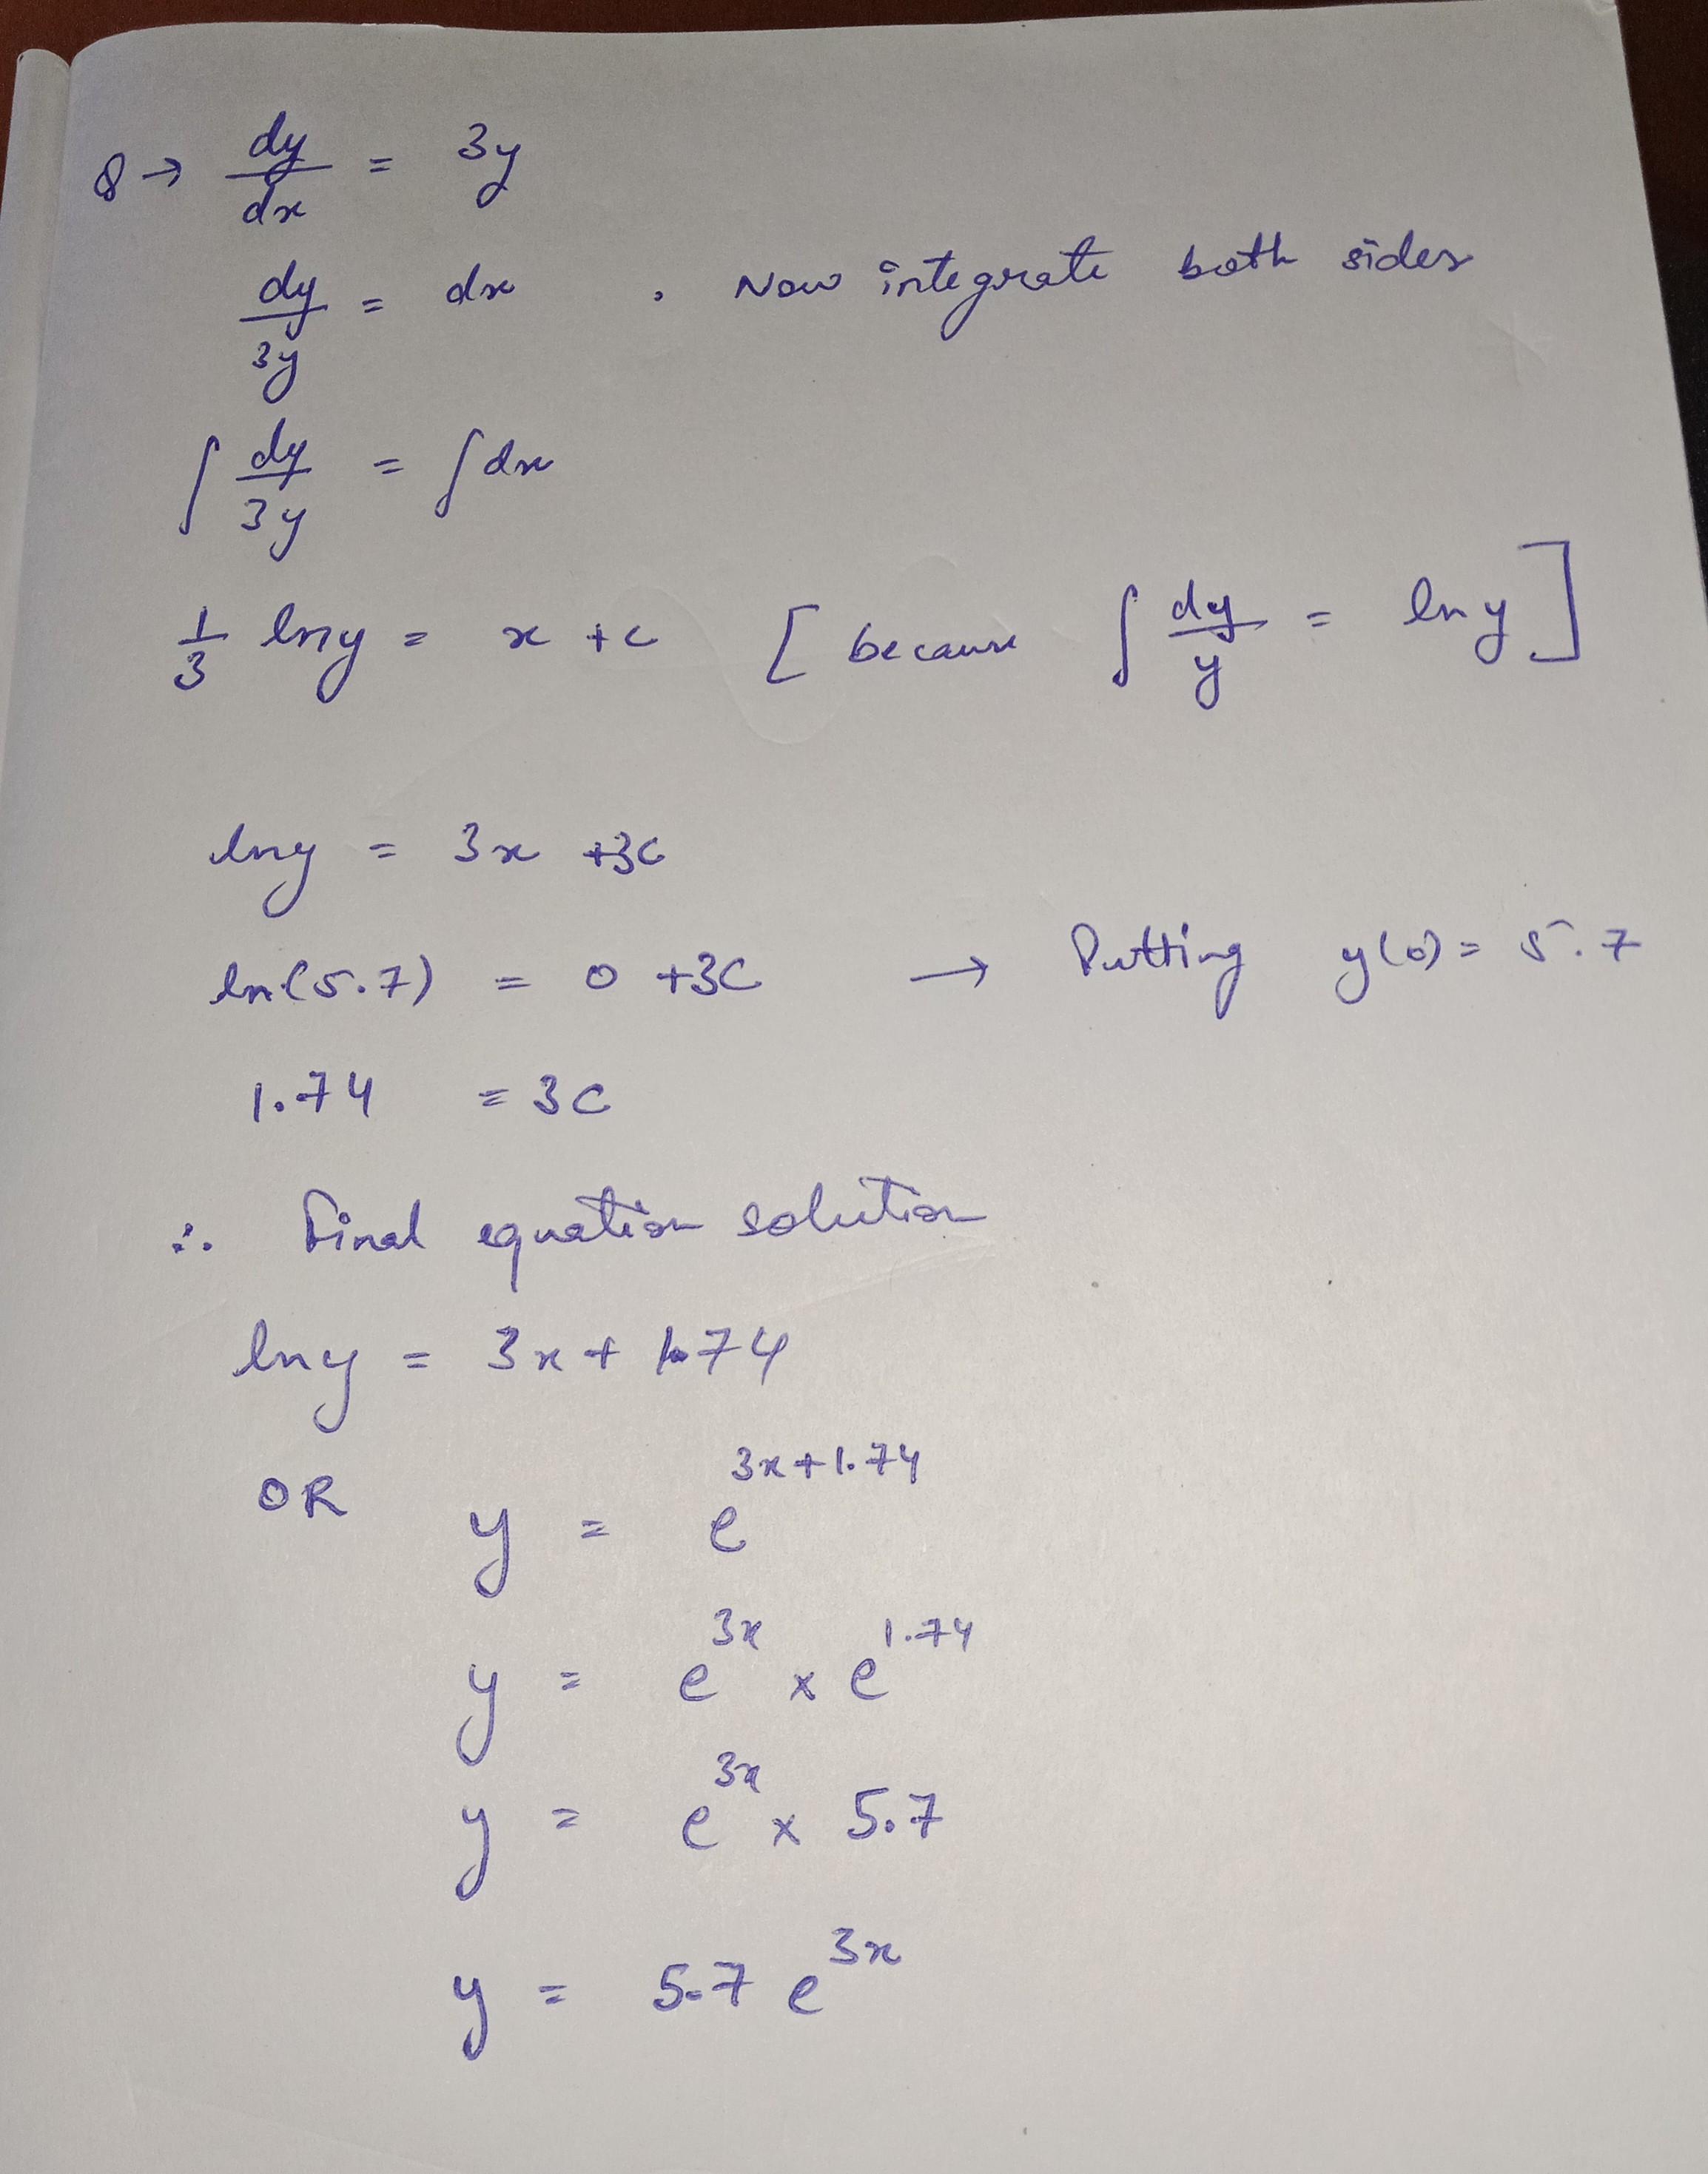 Q → dy/dx = 3y
dy/3y = dx . Now integrate both sides
∫ dy/3y = ∫ dx
1/3 lny = x + c [ because ∫ dy/y = ln y ]
lny = 3x + 3c
ln(5.7) = 0 + 3C → Putting y(0) = 5.7
1.74 = 3C
∴ Final equation solution
lny = 3x + 1.74
OR y = e^(3x+1.74)
y = e^(3x) × e^(1.74)
y = e^(3x) × 5.7
y = 5.7 e^(3x)